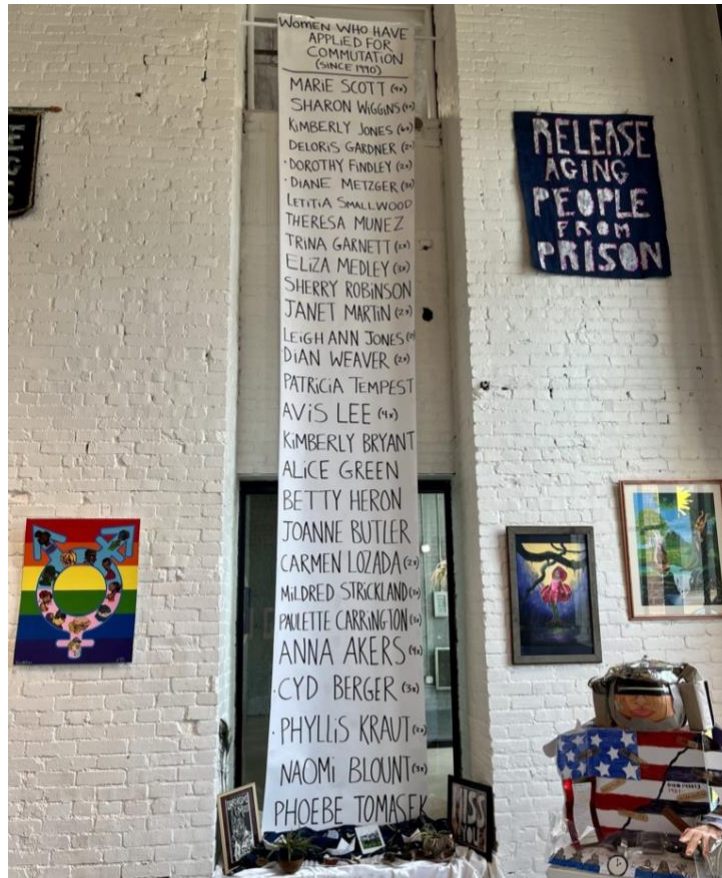 WOMEN WHO HAVE
APPLIED FOR
COMMUTATION
(SINCE 1990)
MARIE SCOTT
SHARON WIGGINS
KIMBERLY JONES
DELORIS GARDNER
DOROTHY FINDLEY (2x)
DIANE METZGER
LETITIA SMALLWOOD
THERESA MUNEZ
TRINA GARNETT
ELIZA MEDLEY
SHERRY ROBINSON
JANET MARTIN (2x)
LEIGH ANN JONES
DIAN WEAVER (2x)
PATRICIA TEMPEST
AVIS LEE (4x)
KIMBERLY BRYANT
ALICE GREEN
BETTY HERON
JOANNE BUTLER
CARMEN LOZADA (2x)
MILDRED STRICKLAND
PAULETTE CARRINGTON
ANNA AKERS
CYD BERGER (3x)
PHYLLIS KRAUT
NAOMI BLOUNT
PHOEBE TOMASEK
RELEASE
AGING
PEOPLE
FROM
PRISON